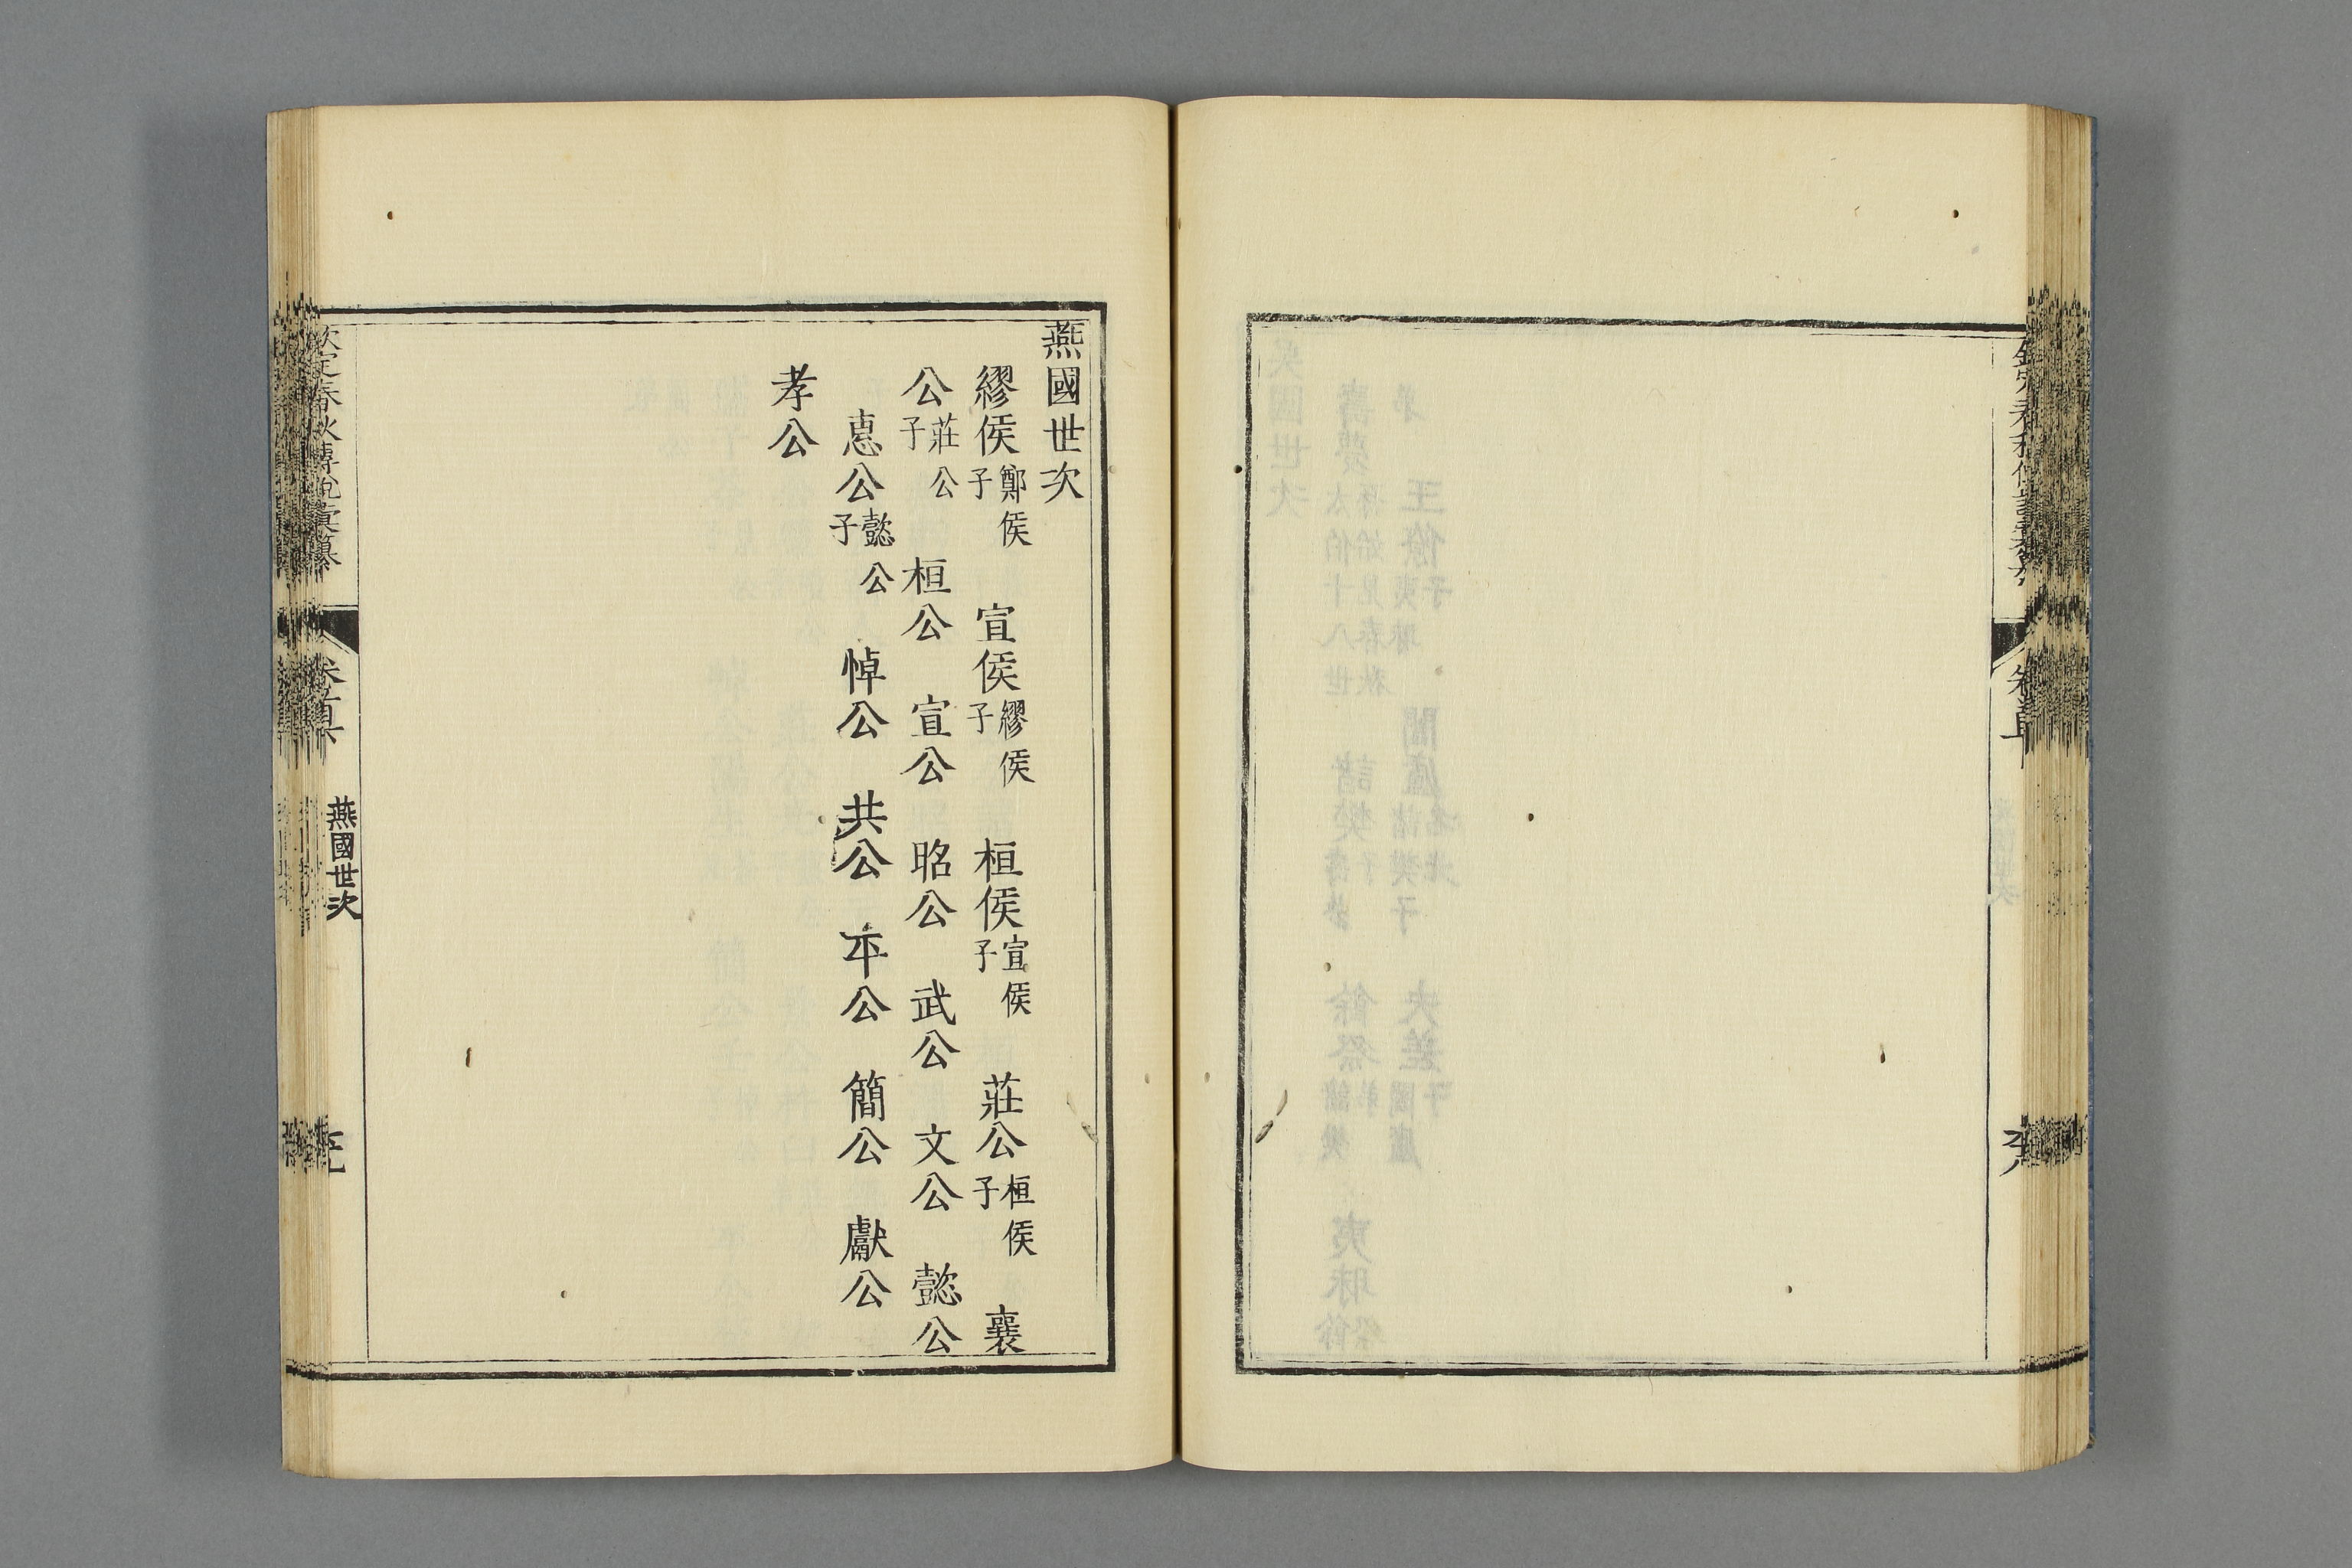 燕國世次
繆侯鄭侯子 宣侯繆侯子 桓侯宣侯子 莊公桓侯子 襄
公莊公子 桓公 宣公 昭公 武公 文公 懿公
惠公懿公子 悼公 共公 平公 簡公 獻公
孝公
欽定春秋傳說彙纂
卷首下
燕國世次